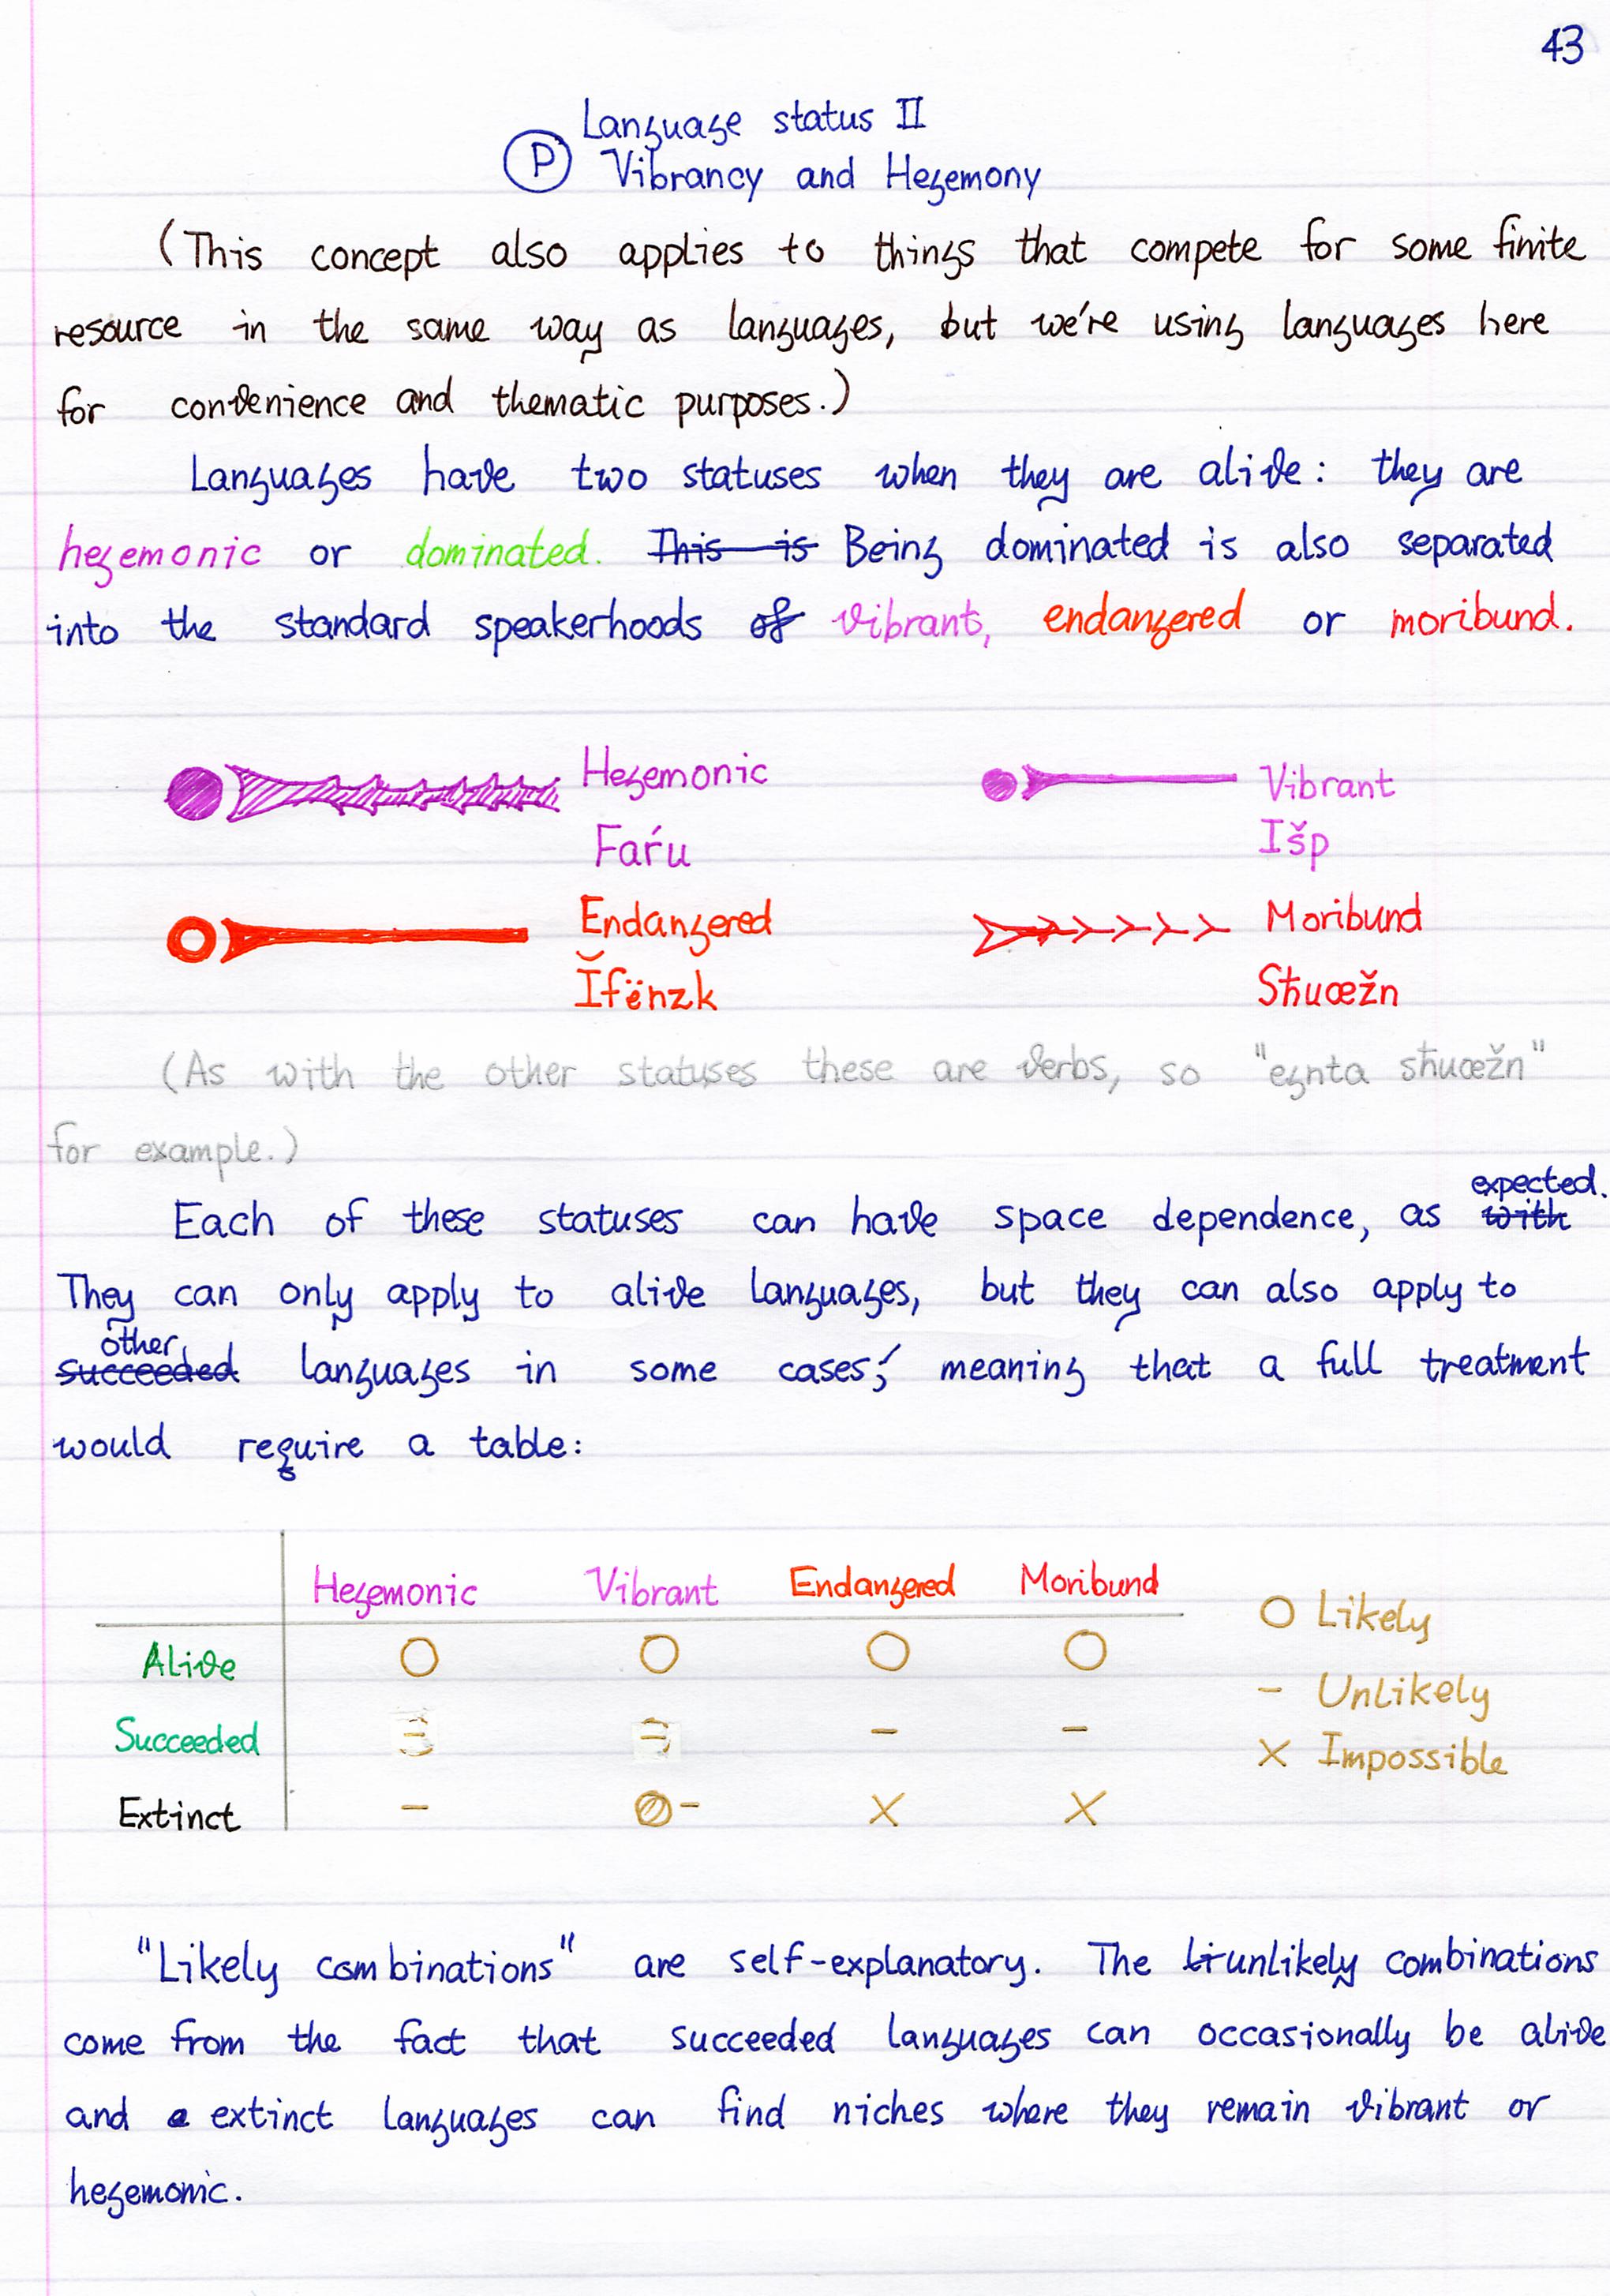 43
Language status II
P Vibrancy and Hegemony
(This concept also applies to things that compete for some finite
resource in the same way as languages, but we're using languages here
for convenience and thematic purposes.)
Languages have two statuses when they are alive: they are
hegemonic or dominated. This is Being dominated is also separated
into the standard speakerhoods of vibrant, endangered or moribund.
Hegemonic Vibrant
Faŕu Išp
Endangered Moribund
Ĭfënzk Sħuœžn
(As with the other statuses these are verbs, so "egnta sħuœžn"
for example.)
Each of these statuses can have space dependence, as with expected.
They can only apply to alive languages, but they can also apply to
succeeded other languages in some cases, meaning that a full treatment
would require a table:
Hegemonic Vibrant Endangered Moribund
○ Likely
Alive ○ ○ ○ ○
- Unlikely
Succeeded - - - -
× Impossible
Extinct - - × ×
"Likely combinations" are self-explanatory. The Li unlikely combinations
come from the fact that succeeded languages can occasionally be alive
and extinct languages can find niches where they remain vibrant or
hegemonic.